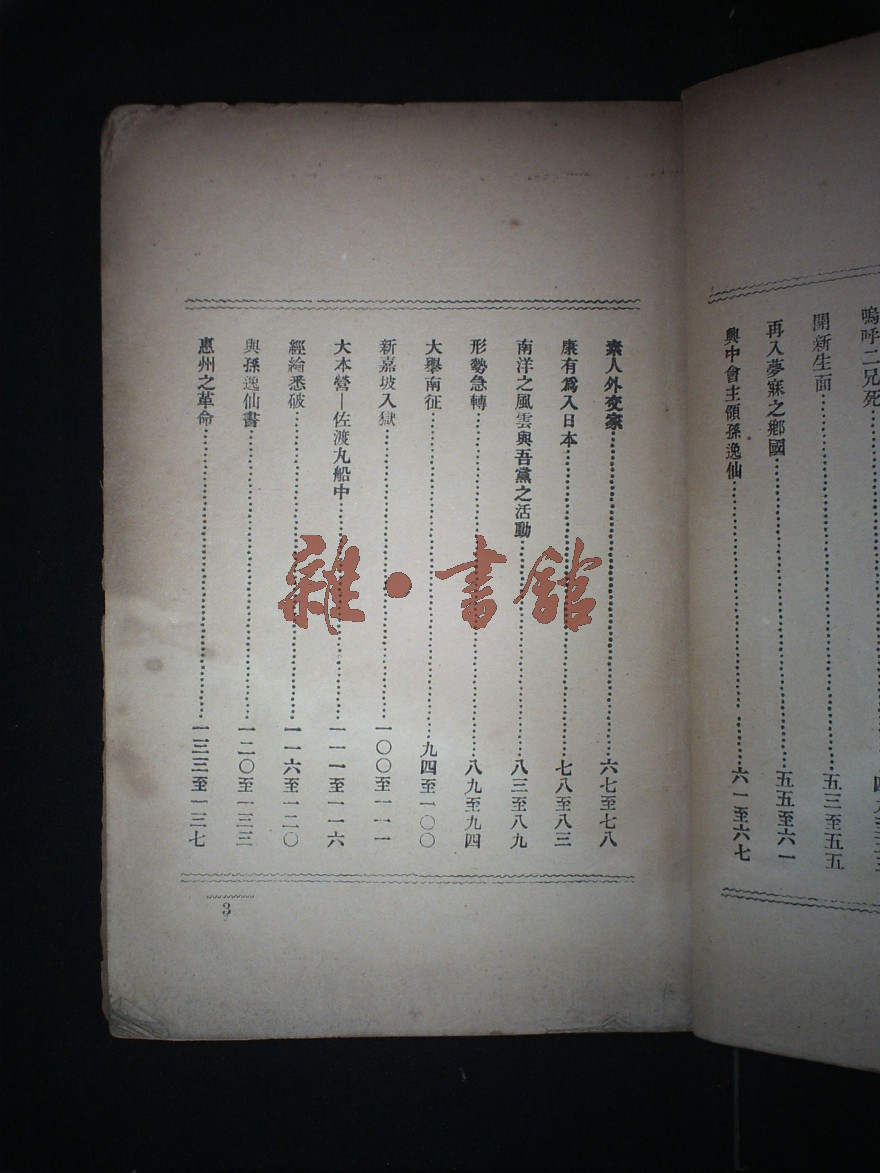 嗚呼二兄死
開新生面……五三至五五
再入夢寐之鄉國……五五至六一
興中會主領孫逸仙……六一至六七
素人外交家……六七至七八
康有爲入日本……七八至八三
南洋之風雲與吾黨之活動……八三至八九
形勢急轉……八九至九四
大擧南征……九四至一〇〇
新嘉坡入獄……一〇〇至一一一
大本營—佐渡丸船中……一一一至一一六
經綸悉破……一一六至一二〇
與孫逸仙書……一二〇至一三三
惠州之革命……一三三至一三七
3
雜·書館